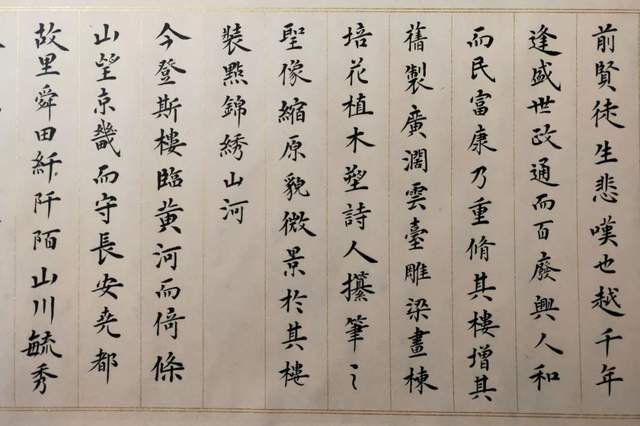 前賢徒生悲嘆也越千年
逢盛世政通而百廢興人和
而民富康乃重脩其樓增其
舊製廣濶雲臺雕梁畫棟
培花植木塑詩人攥筆之
聖像縮原貌微景於其樓
裝點錦綉山河
今登斯樓臨黄河而倚條
山望京畿而守長安堯都
故里舜田紆阡陌山川毓秀